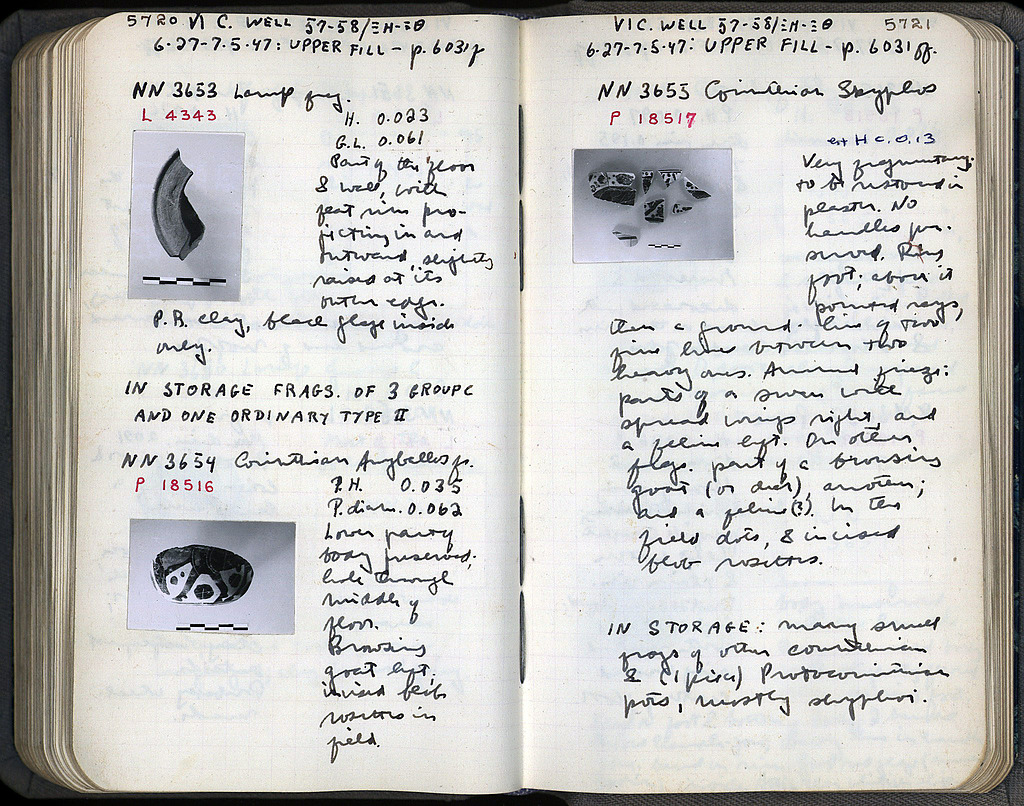 5720 VI C. WELL 57-58/ΞH-ΞΘ
6-27-7-5-47: UPPER FILL - p. 6031ff
NN 3653 Lamp frag.
L 4343
H. 0.023
G.L. 0.061
Part of the floor
& wall, with
flat rim pro-
jecting in and
outward, slightly
raised at its
outer edge.
P.B. clay, black glaze inside
only.
IN STORAGE FRAGS. OF 3 GROUP C
AND ONE ORDINARY TYPE II
NN 3654 Corinthian Aryballos fr.
P 18516
P.H. 0.035
P. diam. 0.062
Lower part of
body preserved;
hole through
middle of
floor.
Browsing
goat left,
incised blob
rosettes in
field.
VI C. WELL 57-58/ΞH-ΞΘ 5721
6-27-7-5-47: UPPER FILL - p. 6031 ff.
NN 3655 Corinthian Skyphos
P 18517
est H c. 0.13
Very fragmentary,
to be restored in
plaster. No
handles pre-
served. Ring
foot; above it
pointed rays,
then a ground-line of two
fine lines between two
heavy ones. Animal frieze:
parts of a swan with
spread wings right, and
a feline left. On other
frags. part of a browsing
goat (or deer), another;
and a feline(?). In the
field dots, & incised
blob rosettes.
IN STORAGE: many small
frags of other corinthian
& (1 piece) Protocorinthian
pots, mostly skyphoi.